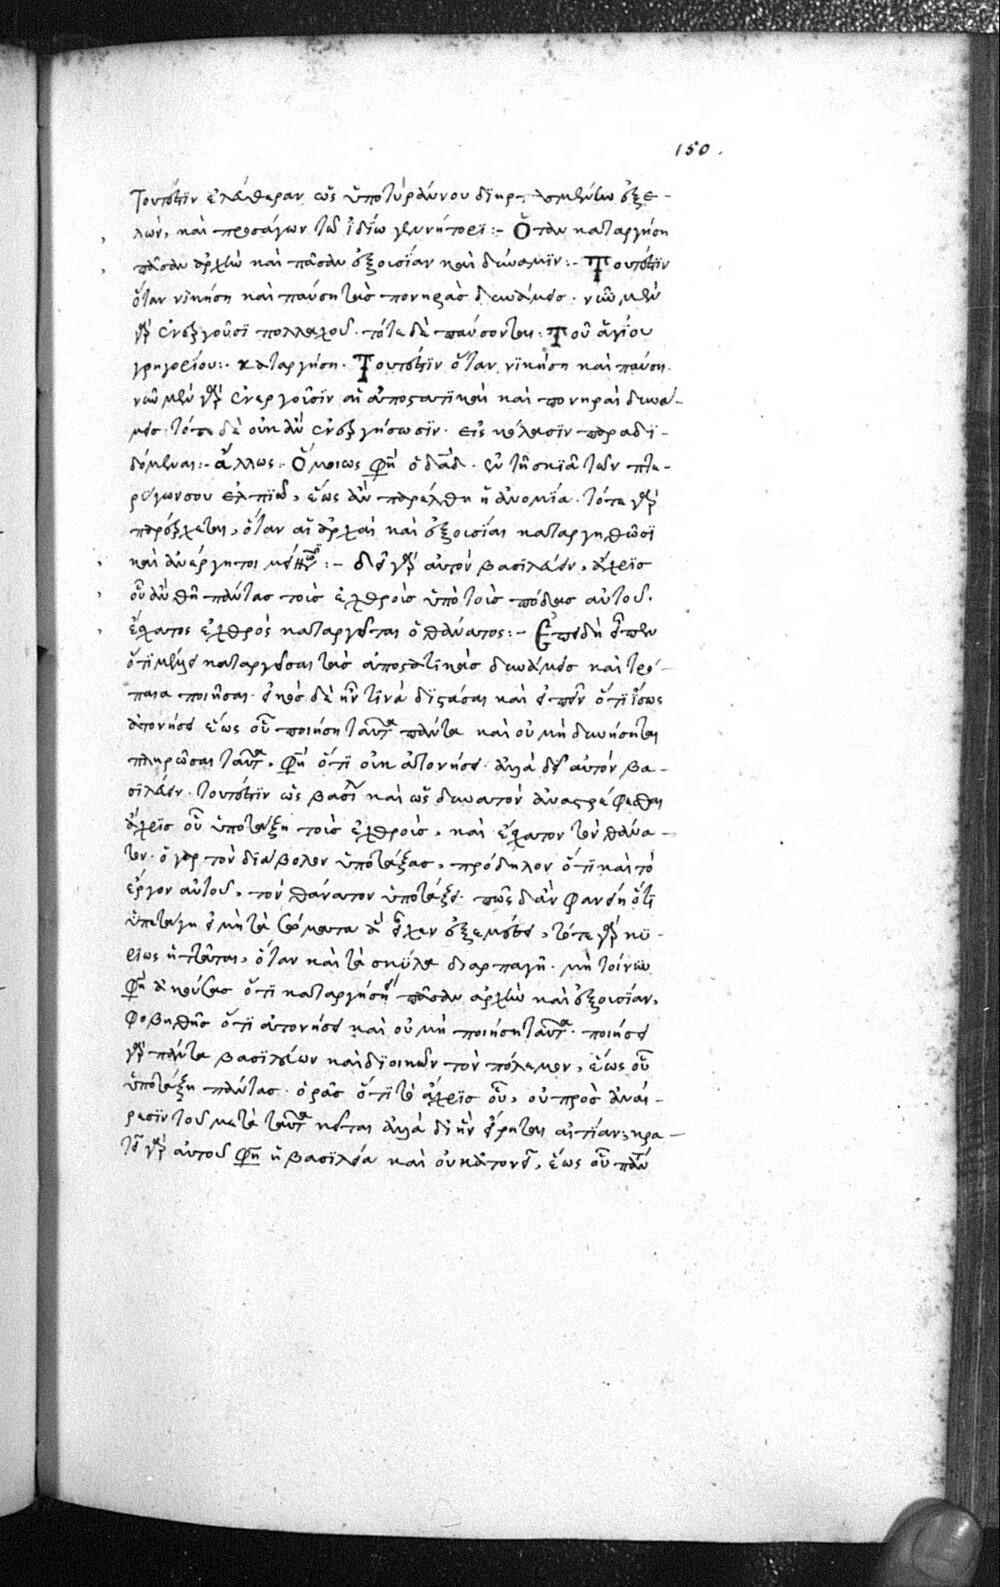 150.
Τουτέστιν ἐλευθέραν ὡς ὑπὸ τυράννου διηρ- πασμένην ἐξε-
λών, καὶ προσάγων τῶ ἰδίω γεννήτορι :- Ὅταν καταργήση
πᾶσαν ἀρχὴν καὶ πᾶσαν ἐξουσίαν καὶ δύναμιν :- Τουτέστιν
ὅταν νικήση καὶ παύση τὰς πονηρὰς δυνάμεις. νῦν μὲν
γὰρ ἐνεργοῦσι πολλαχοῦ. τότε δὲ παύσονται. Τοῦ ἁγίου
γρηγορίου :. καταργήση. Τουτέστιν ὅταν νικήση καὶ παύση.
νῦν μὲν γὰρ ἐνεργοῦσιν αἱ ἀποστατικαὶ καὶ πονηραὶ δυνά-
μεις. τότε δὲ οὐκ ἂν ἐνεργήσωσιν. εἰς κόλασιν παραδι-
δόμεναι :- ἄλλως :. Ὁμοίως φη ὁ δαδ. ἐν τῆ σκιᾶ τῶν πτε-
ρύγων σου ἐλπιῶ, ἕως ἂν παρέλθη ἡ ἀνομία. τότε γὰρ
παρέρχεται, ὅταν αἱ ἀρχαὶ καὶ ἐξουσίαι καταργηθῶσι
καὶ ἀνέργητοι :- δεῖ γὰρ αὐτὸν βασιλεύειν, ἄχρις
οὗ ἂν θῆ πάντας τοὺς ἐχθροὺς ὑπὸ τοὺς πόδας αὐτοῦ.
ἔσχατος ἐχθρὸς καταργεῖται ὁ θάνατος :- Ἐπειδὴ εἶπεν
ὅτι μέλλει καταργεῖσαι τὰς ἀποστατικὰς δυνάμεις καὶ τρό-
παια ποιῆσαι. εἰκὸς δὲ ἦν τινὰ διστάσαι καὶ εἰπεῖν ὅτι ἴσως
ἀτονήσει ἕως οὗ ποιήση ταῦτα πάντα καὶ οὐ μὴ δυνήσηται
πληρῶσαι ταῦτα, φη ὅτι οὐκ ἀτονήσει. ἀλλὰ δεῖ αὐτὸν βα-
σιλεύειν. τουτέστιν ὡς βασιλ καὶ ὡς δυνατὸν ἀναστρέφεσθαι
ἄχρις οὗ ὑποτάξη τοὺς ἐχθροὺς, καὶ ἔσχατον τὸν θάνα-
τον. ὁ γὰρ τὸν διάβολον ὑποτάξας, πρόδηλον ὅτι καὶ τὸ
ἔργον αὐτοῦ, τὸν θάνατον ὑποτάξει. πῶς δ' ἂν φανείη ὅτι
ὑπετάγη εἰ μὴ τὰ σώματα ἃ εἶχεν ἐξεμέσει, τότε γὰρ κύ-
ριως ἡττᾶται, ὅταν καὶ τὰ σκύλα διαρπαγῆ. μὴ τοίνυν
φη ἀκούσας ὅτι καταργήσει πᾶσαν ἀρχὴν καὶ ἐξουσίαν,
φοβηθῆς ὅτι ἀτονήσει καὶ οὐ μὴ ποιήση ταῦτα. ποιήσει
γὰρ πάντα βασιλεύων καὶ διοικῶν τὸν πόλεμον, ἕως οὗ
ὑποτάξη πάντας. ὁρᾶς ὅτι τὸ ἄχρις οὗ, οὐ πρὸς ἀναί-
ρεσιν τοῦ μετὰ ταῦτα κεῖται ἀλλὰ δι' ἣν εἴρηται αἰτίαν, κρα-
τεῖ γὰρ αὐτοῦ φη ἡ βασιλεία καὶ οὐκ ἀτονεῖ, ἕως οὗ πάν